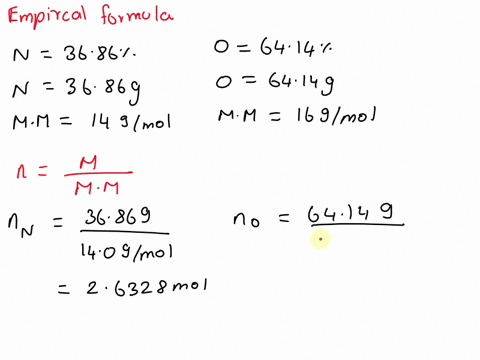 Empircal formula
N = 36.86%
O = 64.14%
N = 36.86g
O = 64.14g
M.M = 14 g/mol
M.M = 16 g/mol
n = M / M.M
nN = 36.86g / 14.0 g/mol
nO = 64.14 g
= 2.6328 mol